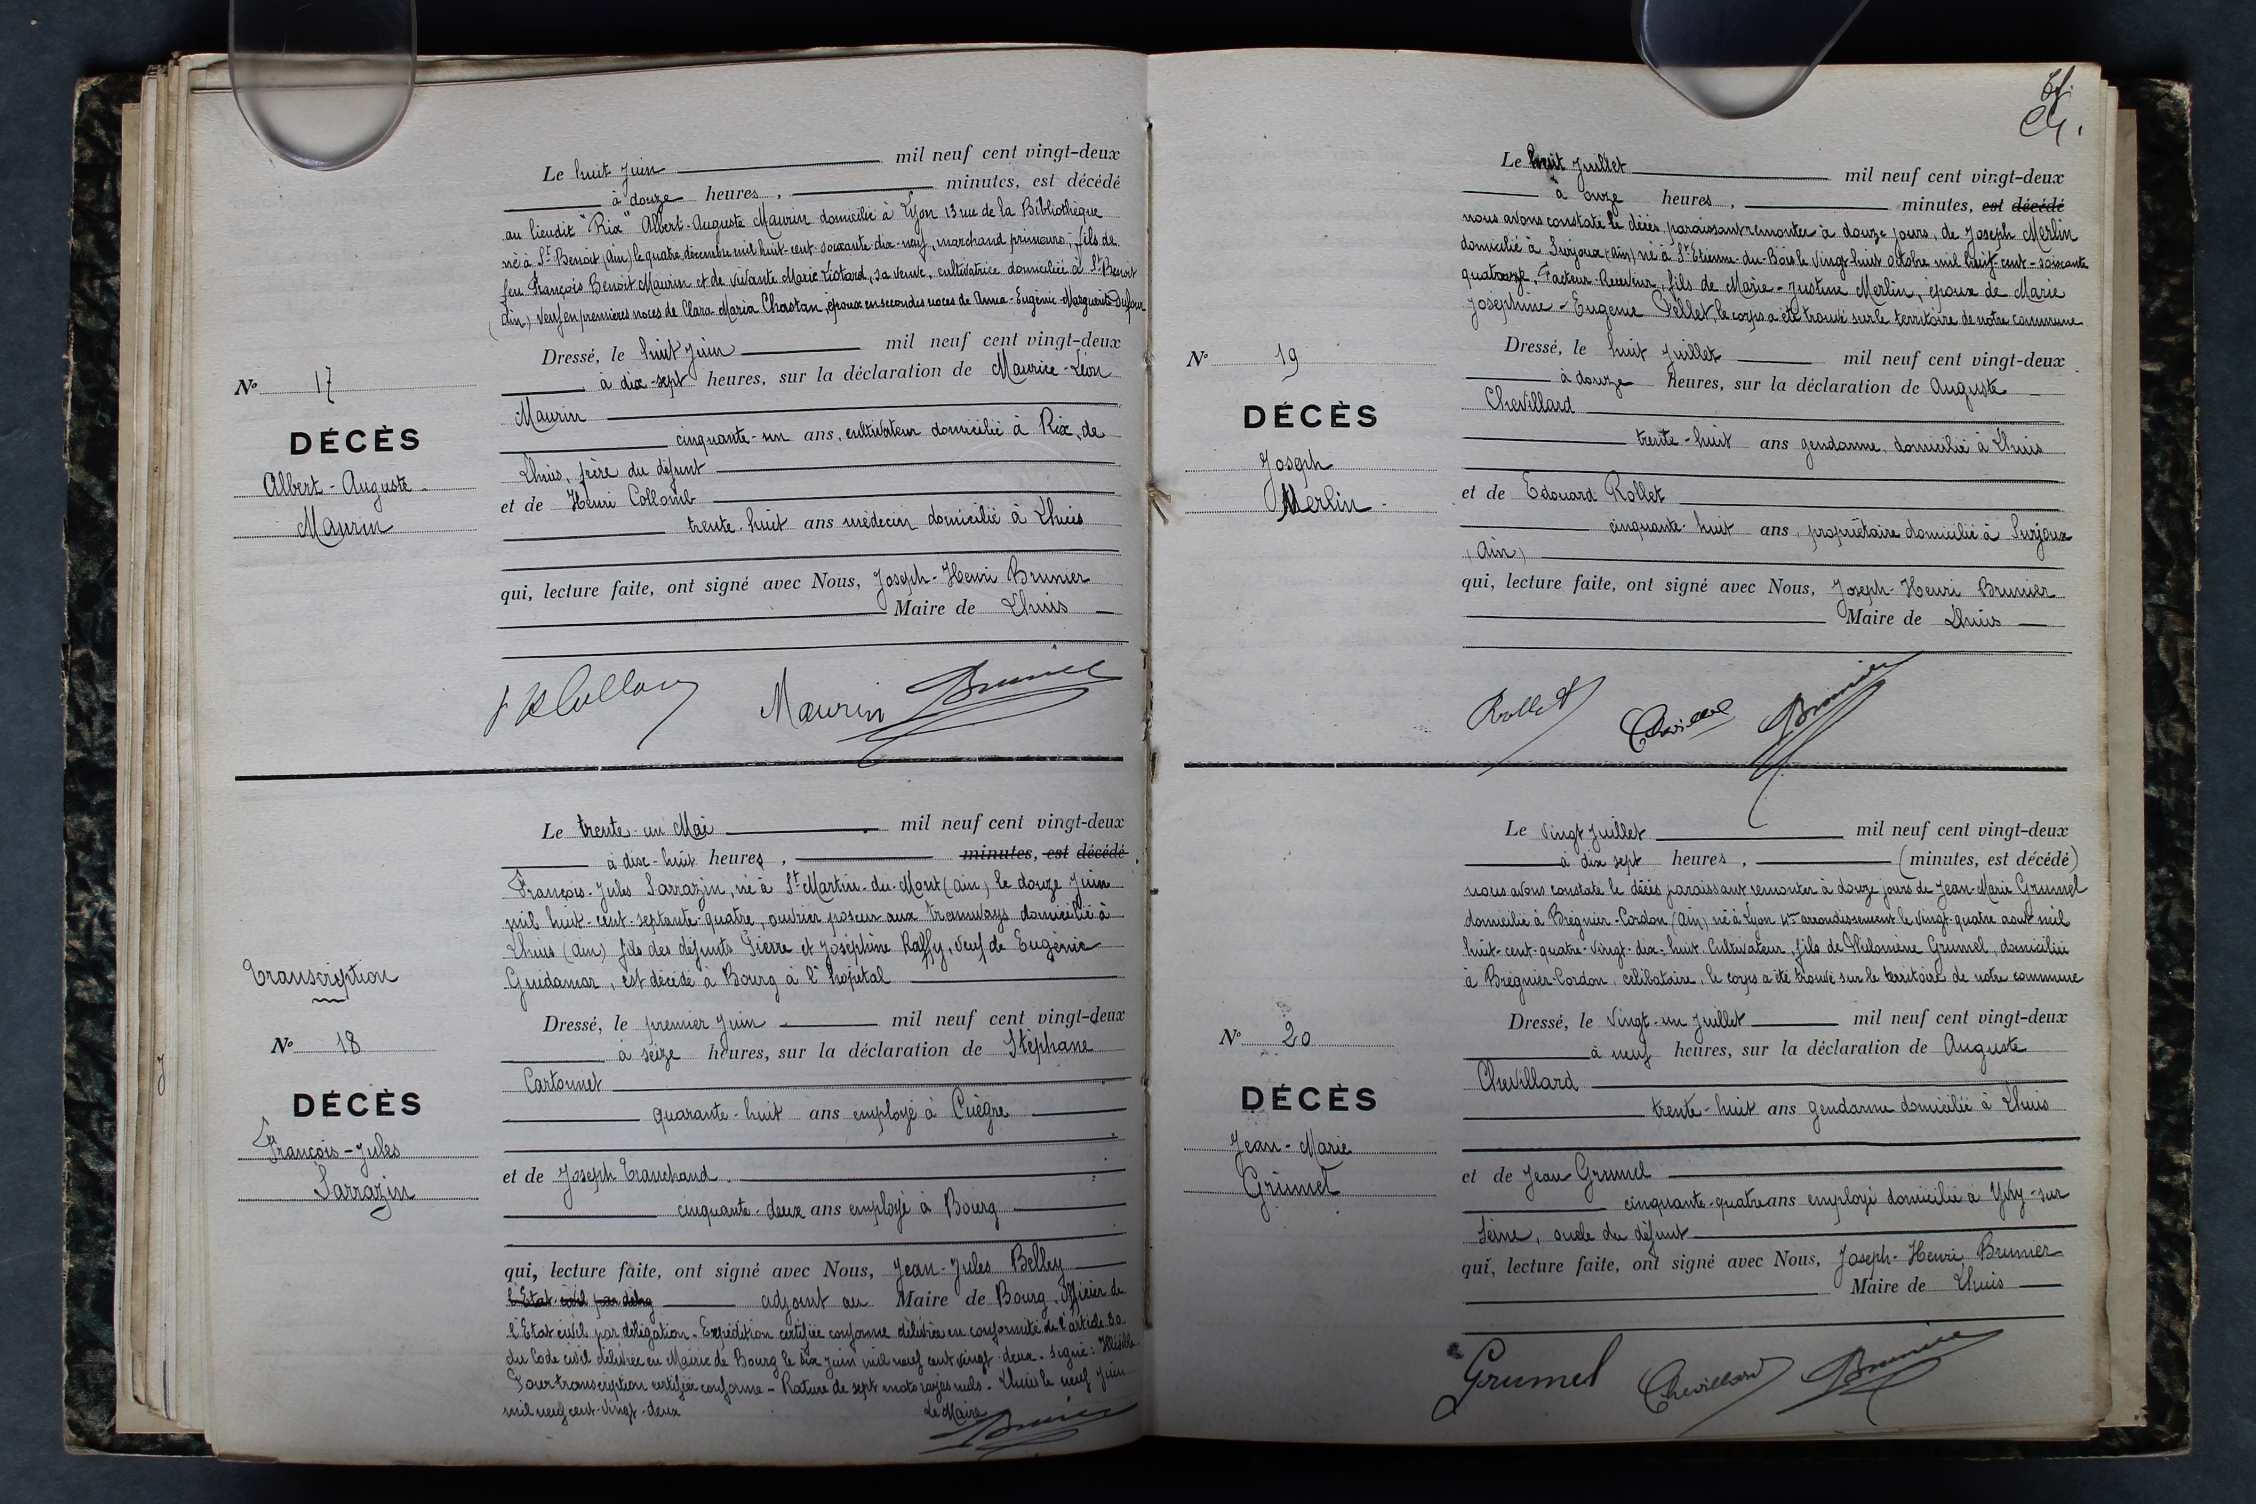 Le huit Juin mil neuf cent vingt-deux
à douze heures, minutes, est décédé
au lieudit "Rix" Albert-Auguste Maurin domicilié à Lyon 13 rue de la Bibliothèque
né à St-Benoit (Ain) le quatre décembre mil huit-cent-soixante-dix-neuf, marchand primeurs, fils de
feu François Benoit Maurin et de vivante Marie Liotard, sa veuve, cultivatrice domiciliée à St Benoit
(Ain) veuf en premières noces de Clara Maria Chastan, époux en secondes noces de Anna-Eugénie-Marguerite Dufour
Dressé, le huit Juin mil neuf cent vingt-deux
à dix-sept heures, sur la déclaration de Maurice-Léon
Nº 17
Maurin
DÉCÈS
cinquante-un ans, cultivateur domicilié à Rix, de
Lhuis, frère du défunt
Albert-Auguste
Maurin
et de Henri Collomb
trente-huit ans médecin domicilié à Lhuis
qui, lecture faite, ont signé avec Nous, Joseph-Henri Brunier
Maire de Lhuis
Maurin Brunier
Le trente-un Mai mil neuf cent vingt-deux
à dix-huit heures, minutes, est décédé
François-Jules Sarrazin, né à St Martin-du-Mont (Ain) le douze Juin
mil huit-cent-septante-quatre, ouvrier poseur aux tramways domicilié à
Lhuis (Ain) fils des défunts Pierre et Joséphine Raffy, veuf de Eugénie
Guidamor, est décédé à Bourg à l'hopital
Transcription
Dressé, le premier Juin mil neuf cent vingt-deux
à seize heures, sur la déclaration de Stéphane
Nº 18
Cartonnet
DÉCÈS
quarante-huit ans employé à
François-Jules
Sarrazin
et de Joseph Tranchand
cinquante-deux ans employé à Bourg
qui, lecture faite, ont signé avec Nous, Jean-Jules Belley
l'Etat-civil par délég adjoint au Maire de Bourg. Officier de
l'Etat civil par délégation. Expédition certifiée conforme délivrée en conformité de l'article 80
du Code civil délivrée en Mairie de Bourg le six Juin mil neuf cent vingt-deux. Signé: Illisible
Pour transcription certifiée conforme - Rature de sept mots rayés nuls. Lhuis le neuf Juin
mil neuf cent-vingt-deux Le Maire
Brunier
Le huit Juillet mil neuf cent vingt-deux
à onze heures, minutes, est décédé
nous avons constaté le décès, paraissant remonter à douze jours, de Joseph Merlin
domicilié à Surjoux (Ain) né à St Etienne-du-Bois le vingt-huit octobre mil huit-cent-soixante
quatorze, Facteur-Receveur, fils de Marie-Justine Merlin, époux de Marie
Joséphine-Eugénie Pellet, le corps a été trouvé sur le territoire de notre commune
Dressé, le huit Juillet mil neuf cent vingt-deux
Nº 19
à douze heures, sur la déclaration de Auguste
Chevillard
DÉCÈS
trente-huit ans gendarme, domicilié à Lhuis
Joseph
Merlin
et de Edouard Rollet
cinquante-huit ans, propriétaire domicilié à Surjoux
(Ain)
qui, lecture faite, ont signé avec Nous, Joseph-Henri Brunier
Maire de Lhuis
Rollet Chevillard Brunier
Le vingt Juillet mil neuf cent vingt-deux
à dix sept heures, (minutes, est décédé)
nous avons constaté le décès paraissant remonter à douze jours de Jean-Marie Grumel
domicilié à Brégnier-Cordon (Ain) né à Lyon 4me arrondissement le vingt-quatre aout mil
huit-cent-quatre-vingt-dix-huit. Cultivateur, fils de Philomène Grumel, domiciliée
à Brégnier-Cordon, célibataire, le corps a été trouvé sur le territoire de notre commune
Dressé, le vingt-un Juillet mil neuf cent vingt-deux
Nº 20
à neuf heures, sur la déclaration de Auguste
Chevillard
DÉCÈS
trente-huit ans gendarme domicilié à Lhuis
Jean-Marie
Grumel
et de Jean Grumel
cinquante-quatre ans employé domicilié à Ivry-sur
Seine, oncle du défunt
qui, lecture faite, ont signé avec Nous, Joseph-Henri Brunier
Maire de Lhuis
Grumel Chevillard Brunier